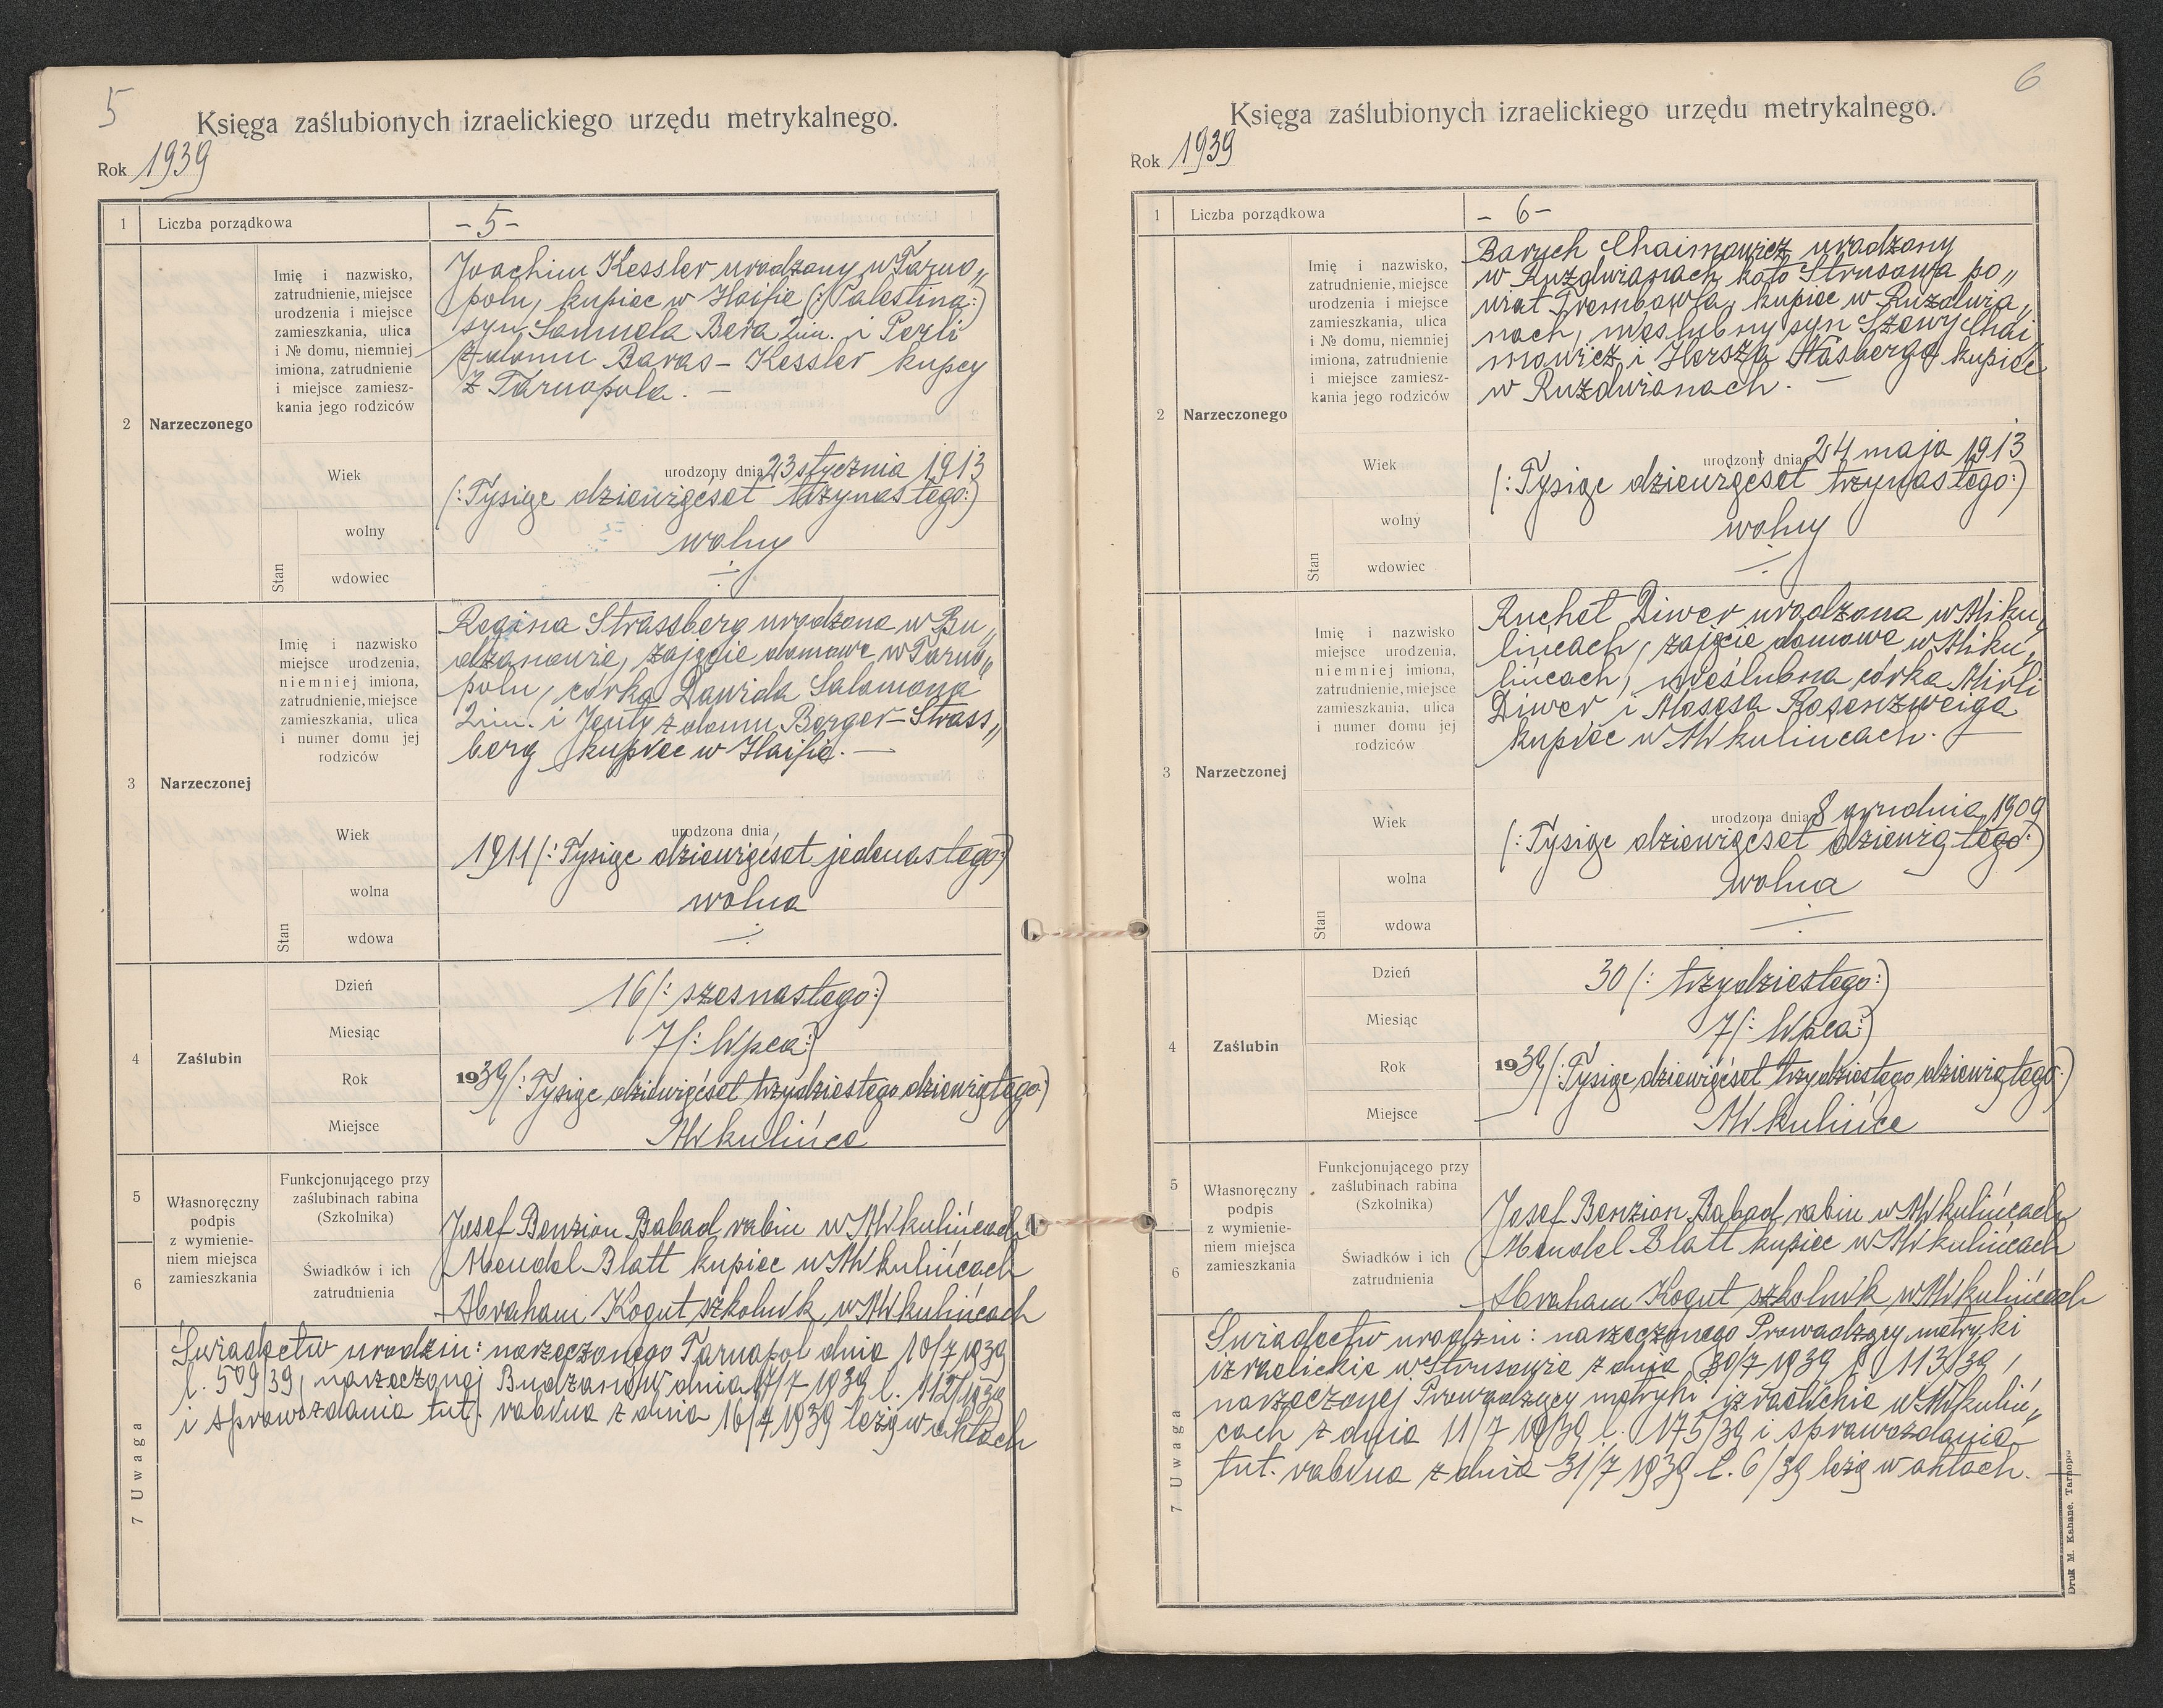 5
Księga zaślubionych izraelickiego urzędu metrykalnego.
Rok 1939
1 Liczba porządkowa - 5 -
2 Narzeczonego
Imię i nazwisko,
zatrudnienie, miejsce
urodzenia i miejsce
zamieszkania, ulica
i № domu, niemniej
imiona, zatrudnienie
i miejsce zamiesz-
kania jego rodziców
Joachim Kessler urodzony w Tarno„
polu, kupiec w Haifie (: Palestina :)
syn Samuela Bera 2im. i Perli
z domu Baras - Kessler kupcy
z Tarnopola. —
Wiek
urodzony dnia 23 stycznia 1913
(: Tysiąc dziewięćset trzynastego :)
Stan
wolny wolny
wdowiec
3 Narzeczonej
Imię i nazwisko
miejsce urodzenia,
niemniej imiona,
zatrudnienie, miejsce
zamieszkania, ulica
i numer domu jej
rodziców
Regina Strassberg urodzona w Bu„
dzanowie, zajęcie domowe w Tarno„
polu, córka Dawida Salomona
2im. i Jenty z domu Berger - Strass„
berg kupiec w Haifie. —
Wiek
urodzona dnia
1911 (: Tysiąc dziewięćset jedenastego :)
Stan
wolna wolna
wdowa
4 Zaślubin
Dzień 16 (: szesnastego :)
Miesiąc 7 (: lipca :)
Rok 1939 (: Tysiąc dziewięćset trzydziestego dziewiątego :)
Miejsce Mikulińce
5
6
Własnoręczny
podpis
z wymienie-
niem miejsca
zamieszkania
Funkcjonującego przy
zaślubinach rabina
(Szkolnika)
Świadków i ich
zatrudnienia
Josef Benzion Babad rabin w Mikulińcach
Mendel Blatt kupiec w Mikulińcach
Abraham Kogut szkolnik w Mikulińcach
7 Uwaga
Świadectw urodzin: narzeczonego Tarnopol dnia 10/7 1939
l. 509/39, narzeczonej Budzanów dnia 7/7 1939 l. 112/1939
i sprawozdania tut. rabina z dnia 16/7 1939 leżą w aktach
6
Księga zaślubionych izraelickiego urzędu metrykalnego.
Rok 1939
1 Liczba porządkowa - 6 -
2 Narzeczonego
Imię i nazwisko,
zatrudnienie, miejsce
urodzenia i miejsce
zamieszkania, ulica
i № domu, niemniej
imiona, zatrudnienie
i miejsce zamiesz-
kania jego rodziców
Baruch Chaimowicz urodzony
w Ruzdwianach koło Strusowa po„
wiat Trembowla, kupiec w Ruzdwia„
nach, nieślubny syn Szewy Chai„
mowicz i Hersza Nasberga kupiec
w Ruzdwianach. —
Wiek
urodzony dnia 24 maja 1913
(: Tysiąc dziewięćset trzynastego :)
Stan
wolny wolny
wdowiec
3 Narzeczonej
Imię i nazwisko
miejsce urodzenia,
niemniej imiona,
zatrudnienie, miejsce
zamieszkania, ulica
i numer domu jej
rodziców
Ruchel Diwer urodzona w Miku„
lińcach, zajęcie domowe w Miku„
lińcach, nieślubna córka Mirli
Diwer i Mosesa Rosenzweiga
kupiec w Mikulińcach. —
Wiek
urodzona dnia 8 grudnia 1909
(: Tysiąc dziewięćset dziewiątego :)
Stan
wolna wolna
wdowa
4 Zaślubin
Dzień 30 (: trzydziestego :)
Miesiąc 7 (: lipca :)
Rok 1939 (: Tysiąc dziewięćset trzydziestego dziewiątego :)
Miejsce Mikulińce
5
6
Własnoręczny
podpis
z wymienie-
niem miejsca
zamieszkania
Funkcjonującego przy
zaślubinach rabina
(Szkolnika)
Świadków i ich
zatrudnienia
Josef Benzion Babad rabin w Mikulińcach
Mendel Blatt kupiec w Mikulińcach
Abraham Kogut szkolnik w Mikulińcach
7 Uwaga
Świadectw urodzin: narzeczonego Prowadzący metryki
izraelickie w Strusowie z dnia 30/7 1939 l. 113/39,
narzeczonej Prowadzący metryki izraelickie w Mikuliń„
cach z dnia 11/7 1939 l. 175/39 i sprawozdania
tut. rabina z dnia 31/7 1939 l. 6/39 leżą w aktach. —
Druk M. Kahane, Tarnopol